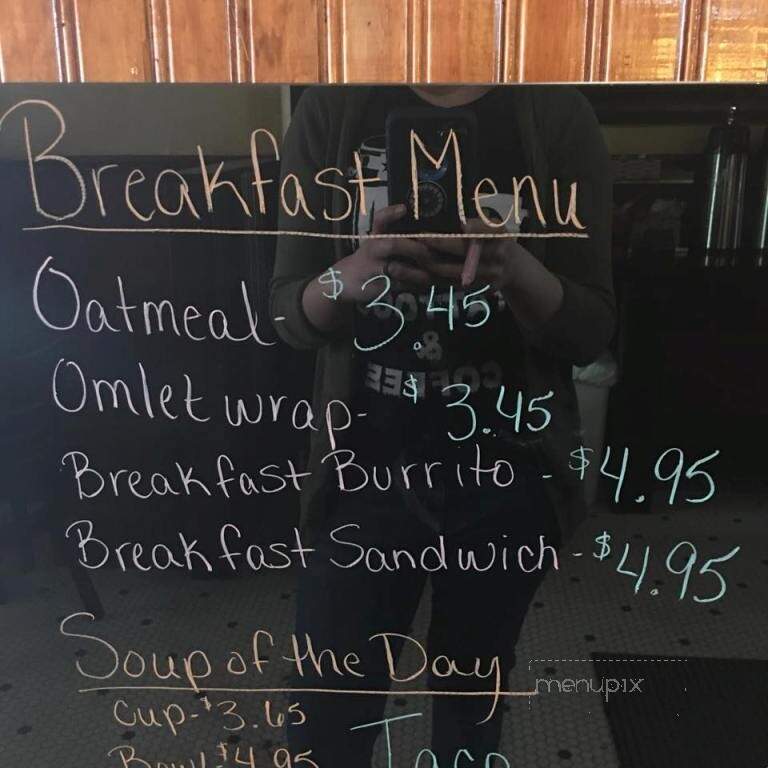 Breakfast Menu
Oatmeal- $3.45
Omlet wrap- $3.45
Breakfast Burrito - $4.95
Breakfast Sandwich - $4.95
Soup of the Day
menupix
Cup- $3.65
Bowl- $4.95 Taco
&
COFFEE